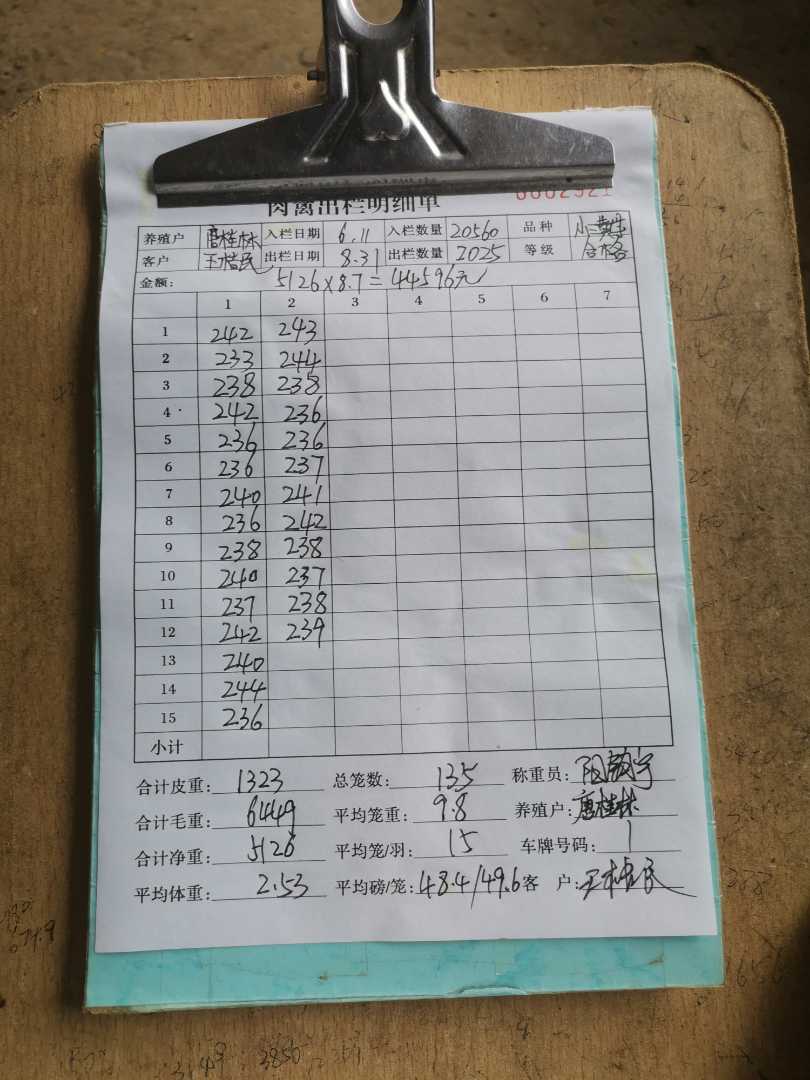 肉禽出栏明细单
养殖户 唐桂林 入栏日期 6.11 入栏数量 20560 品种 小黄
客户 王桂民 出栏日期 8.31 出栏数量 2025 等级 合格
金额: 5126×8.7=44596元
1 2 3 4 5 6 7
1 242 243
2 233 244
3 238 238
4 242 236
5 236 236
6 236 237
7 240 241
8 236 242
9 238 238
10 240 237
11 237 238
12 242 239
13 240
14 244
15 236
小计
合计皮重: 1323 总笼数: 135 称重员:
合计毛重: 6449 平均笼重: 9.8 养殖户: 唐桂林
合计净重: 5126 平均笼/羽: 15 车牌号码: 1
平均体重: 2.53 平均磅/笼: 48.4/49.6 客 户: